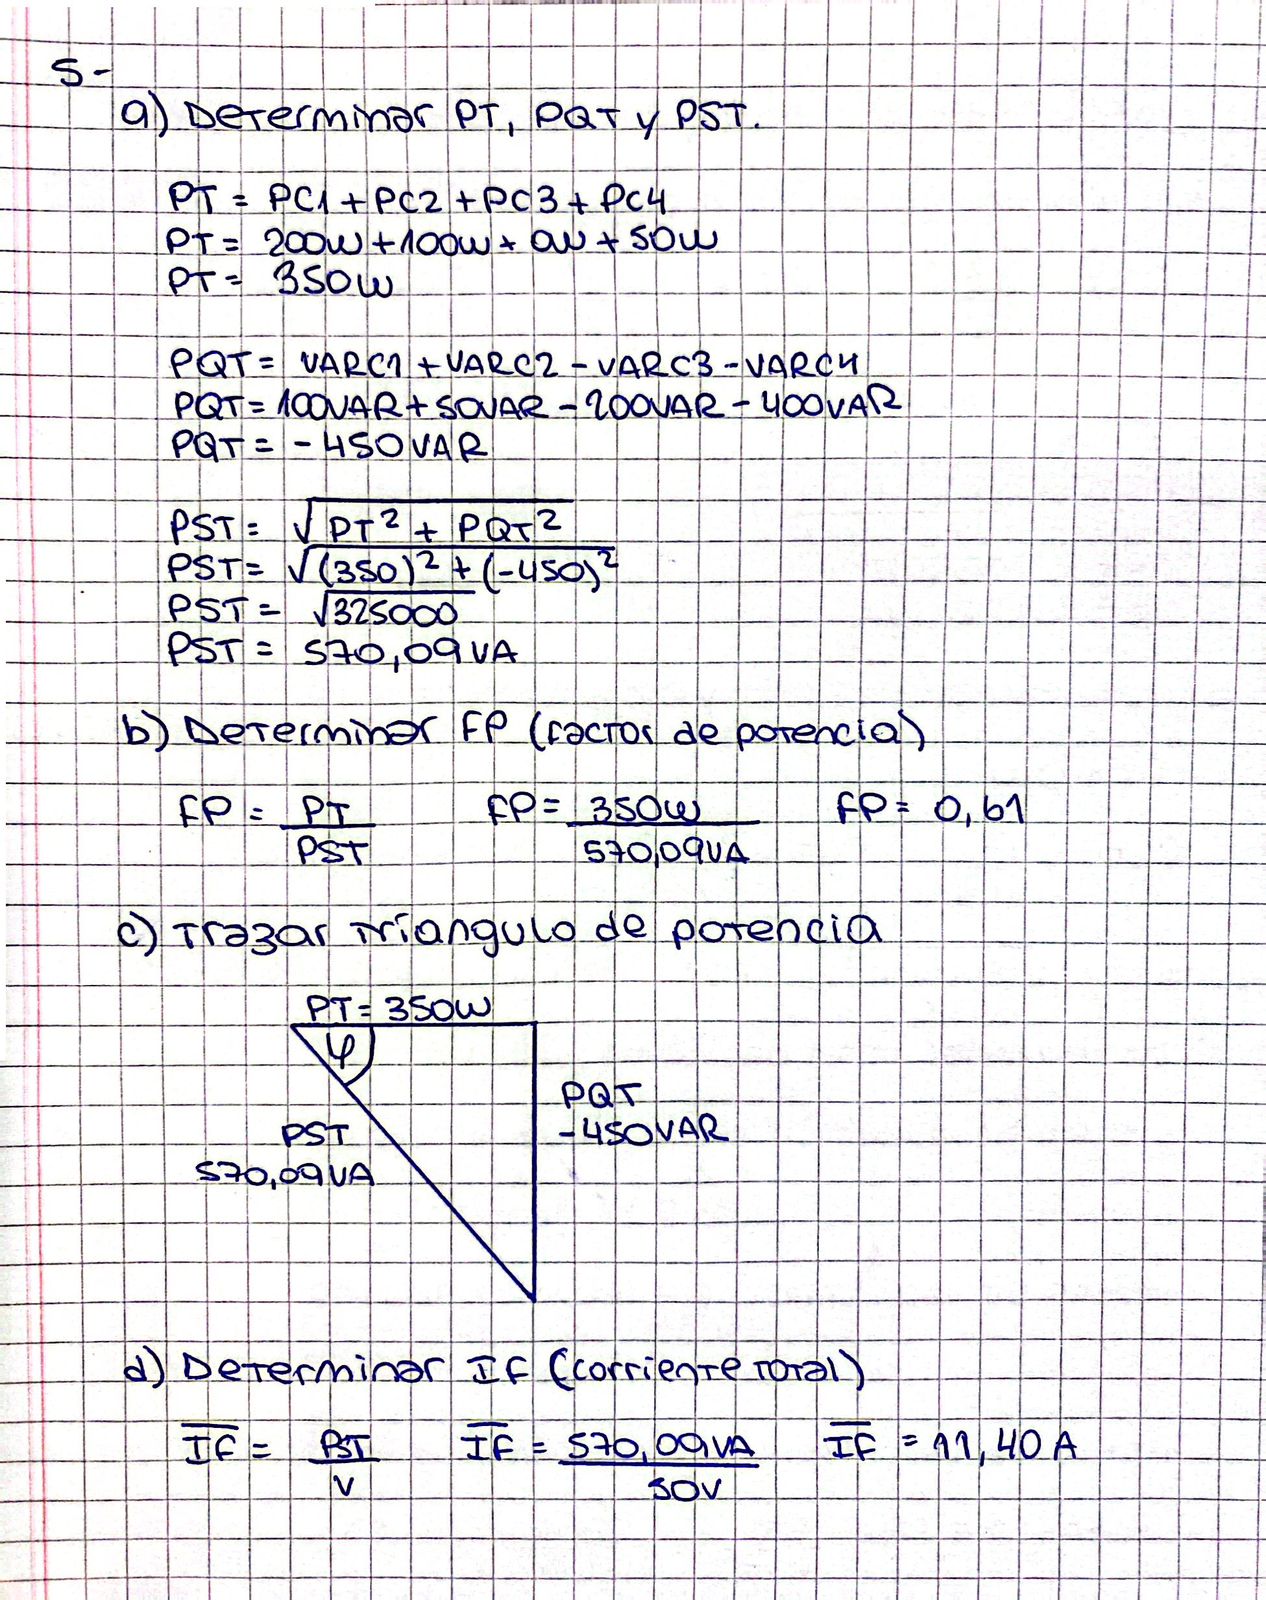 5-
a) Determinar PT, PQT y PST.
PT = PC1 + PC2 + PC3 + PC4
PT = 200W + 100W + 0W + 50W
PT = 350W
PQT = VARC1 + VARC2 - VARC3 - VARC4
PQT = 100VAR + 50VAR - 200VAR - 400VAR
PQT = -450VAR
PST = √PT² + PQT²
PST = √(350)² + (-450)²
PST = √325000
PST = 570,09VA
b) Determinar FP (factor de potencia)
FP = PT/PST FP = 350W/570,09VA FP = 0,61
c) Trazar triangulo de potencia
PT = 350W
φ
PQT
-450VAR
PST
570,09VA
d) Determinar IF (corriente total)
IF = PST/V IF = 570,09VA/50V IF = 11,40A